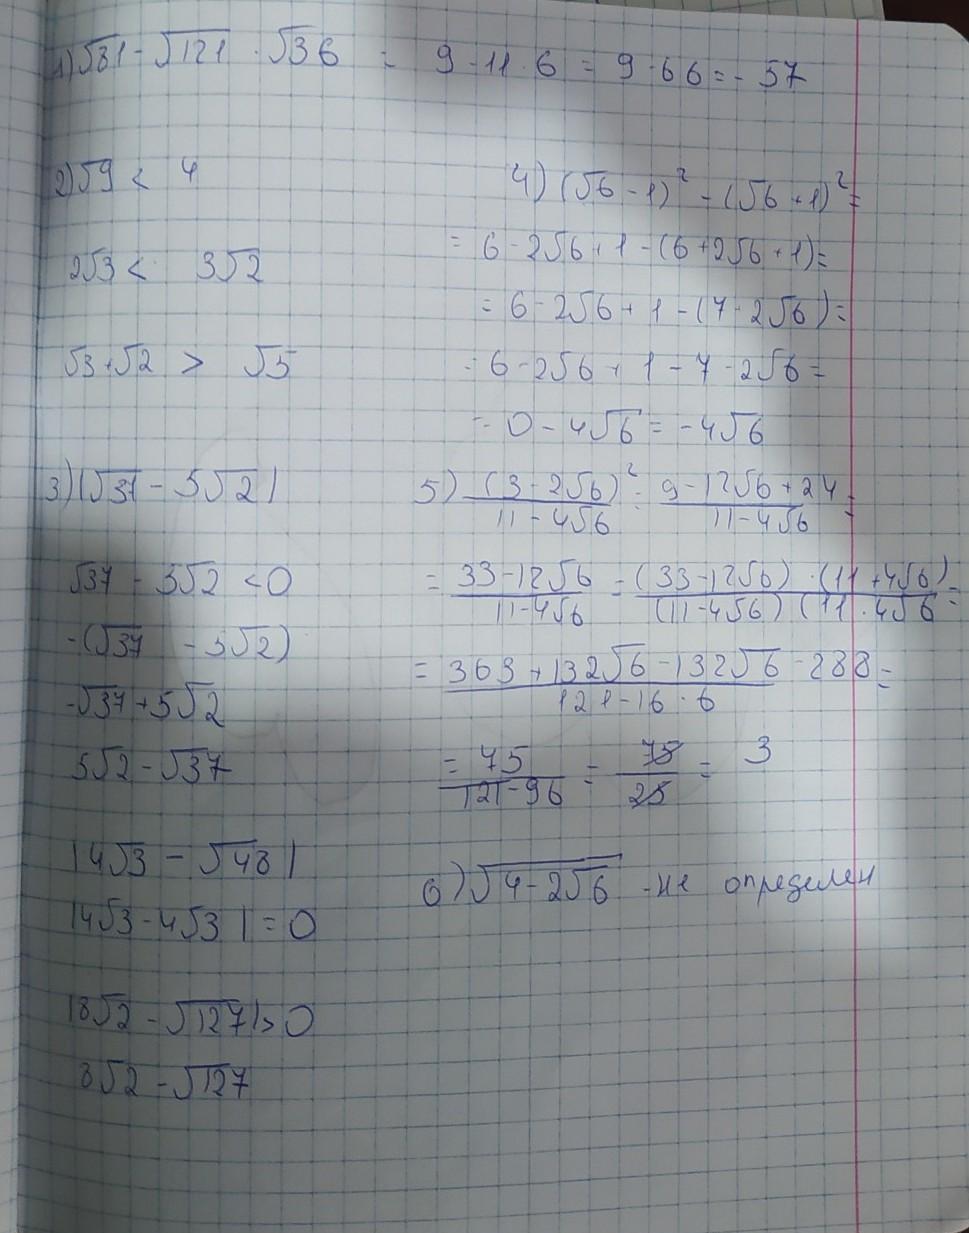 1) √81 - √121 · √36 = 9 - 11 · 6 = 9 - 66 = - 57
2) √9 < 4
2√3 < 3√2
√3 + √2 > √5
3) |√37 - 5√2|
√37 - 5√2 < 0
-(√37 - 5√2)
-√37 + 5√2
5√2 - √37
|4√3 - √48|
|4√3 - 4√3| = 0
|8√2 - √127| > 0
8√2 - √127
4) (√6 - 1)² - (√6 + 1)² =
= 6 - 2√6 + 1 - (6 + 2√6 + 1) =
= 6 - 2√6 + 1 - (7 + 2√6) =
= 6 - 2√6 + 1 - 7 - 2√6 =
= 0 - 4√6 = -4√6
5) (3 - 2√6)² / (11 - 4√6) = (9 - 12√6 + 24) / (11 - 4√6) =
= (33 - 12√6) / (11 - 4√6) = (33 - 12√6) · (11 + 4√6) / (11 - 4√6) (11 + 4√6) =
= (363 + 132√6 - 132√6 - 288) / (121 - 16 · 6) =
= 75 / (121 - 96) = 75 / 25 = 3
6) √(4 - 2√6) - не определен